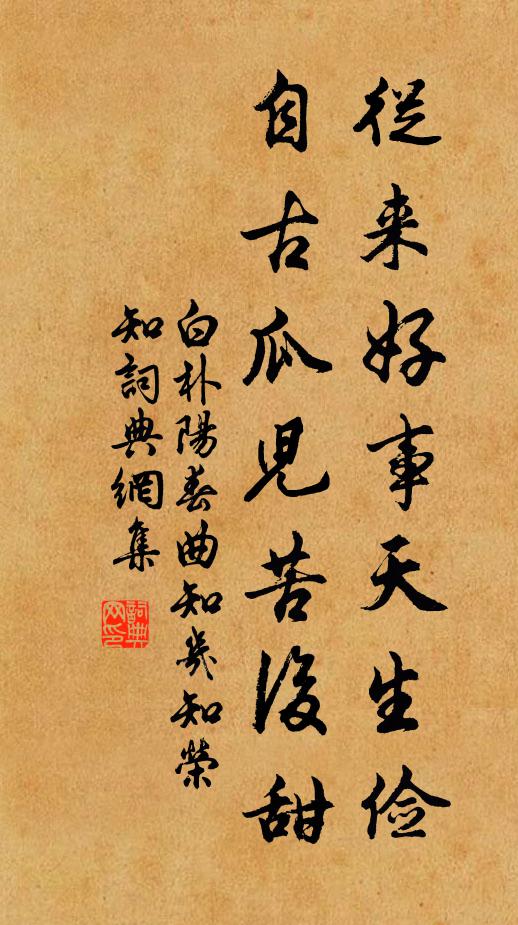 從来好事天生儉
自古瓜児苦後甜
白朴陽春曲知幾知榮
知詞典網集
詞典
网印